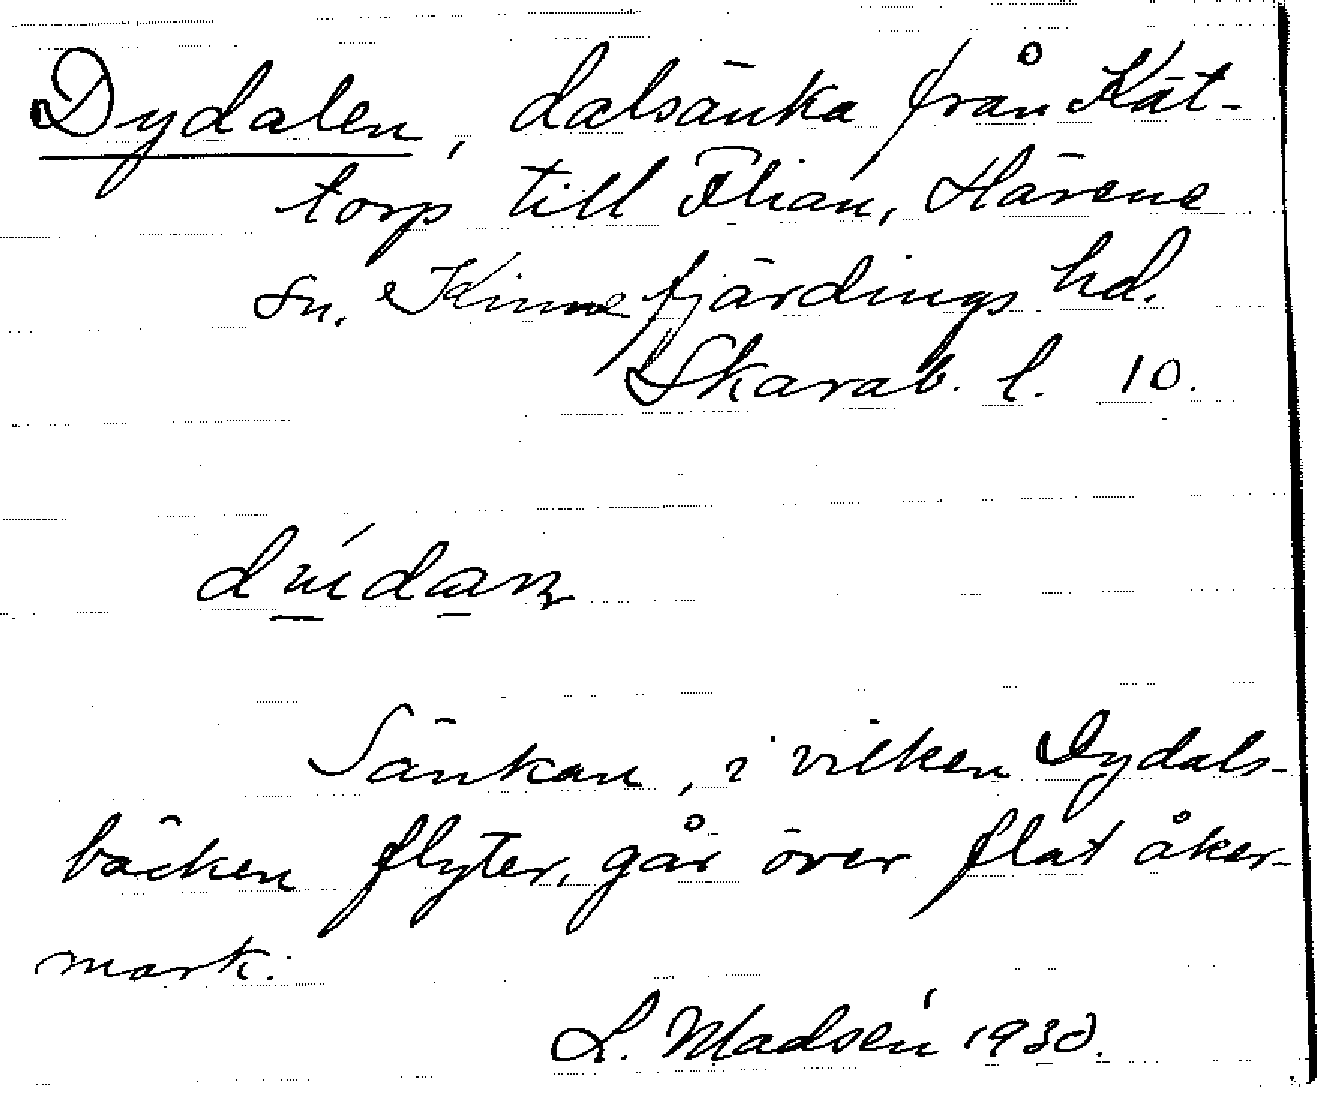 Dydalen, dalsänka från Kät-
torp till Flian, Härene
sn. Kinnefjärdings hd.
Skarab. l. 10.
Sänkan, i vilken Dydals-
bäcken flyter, går över flat åker-
mark.
L. Madsén 1930.